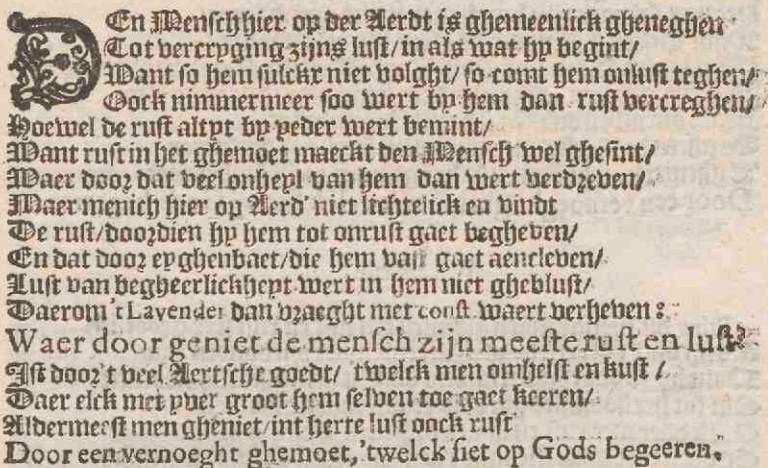 DEn Mensch hier op der Aerdt is ghemeenlick gheneghen
Tot vercryging zijns lust/ in als wat hy begint/
Want so hem sulckx niet volght/ so comt hem onlust teghen/
Oock nimmermeer soo wert by hem dan rust vercreghen/
Hoewel de rust altyt by yeder wert bemint/
Want rust in het ghemoet maeckt den Mensch wel ghesint/
Waer door dat veel onheyl van hem dan wert verdreven/
Maer menich hier op Aerd' niet lichtelick en vindt
De rust/ doordien hy hem tot onrust gaet begheven/
En dat door eyghenbaet/ die hem vast gaet aencleven/
Lust van begheerlickheyt wert in hem niet gheblust/
Daerom 't Lavender dan vraeght met const waert verheven:
Waer door geniet de mensch zijn meeste rust en lust?
Ist door 't veel Aertsche goedt/ 'twelck men omhelst en kust/
Daer elck met yver groot hem selven toe gaet keeren/
Aldermeest men gheniet/ int herte lust oock rust
Door een vernoeght ghemoet, 'twelck siet op Gods begeeren.